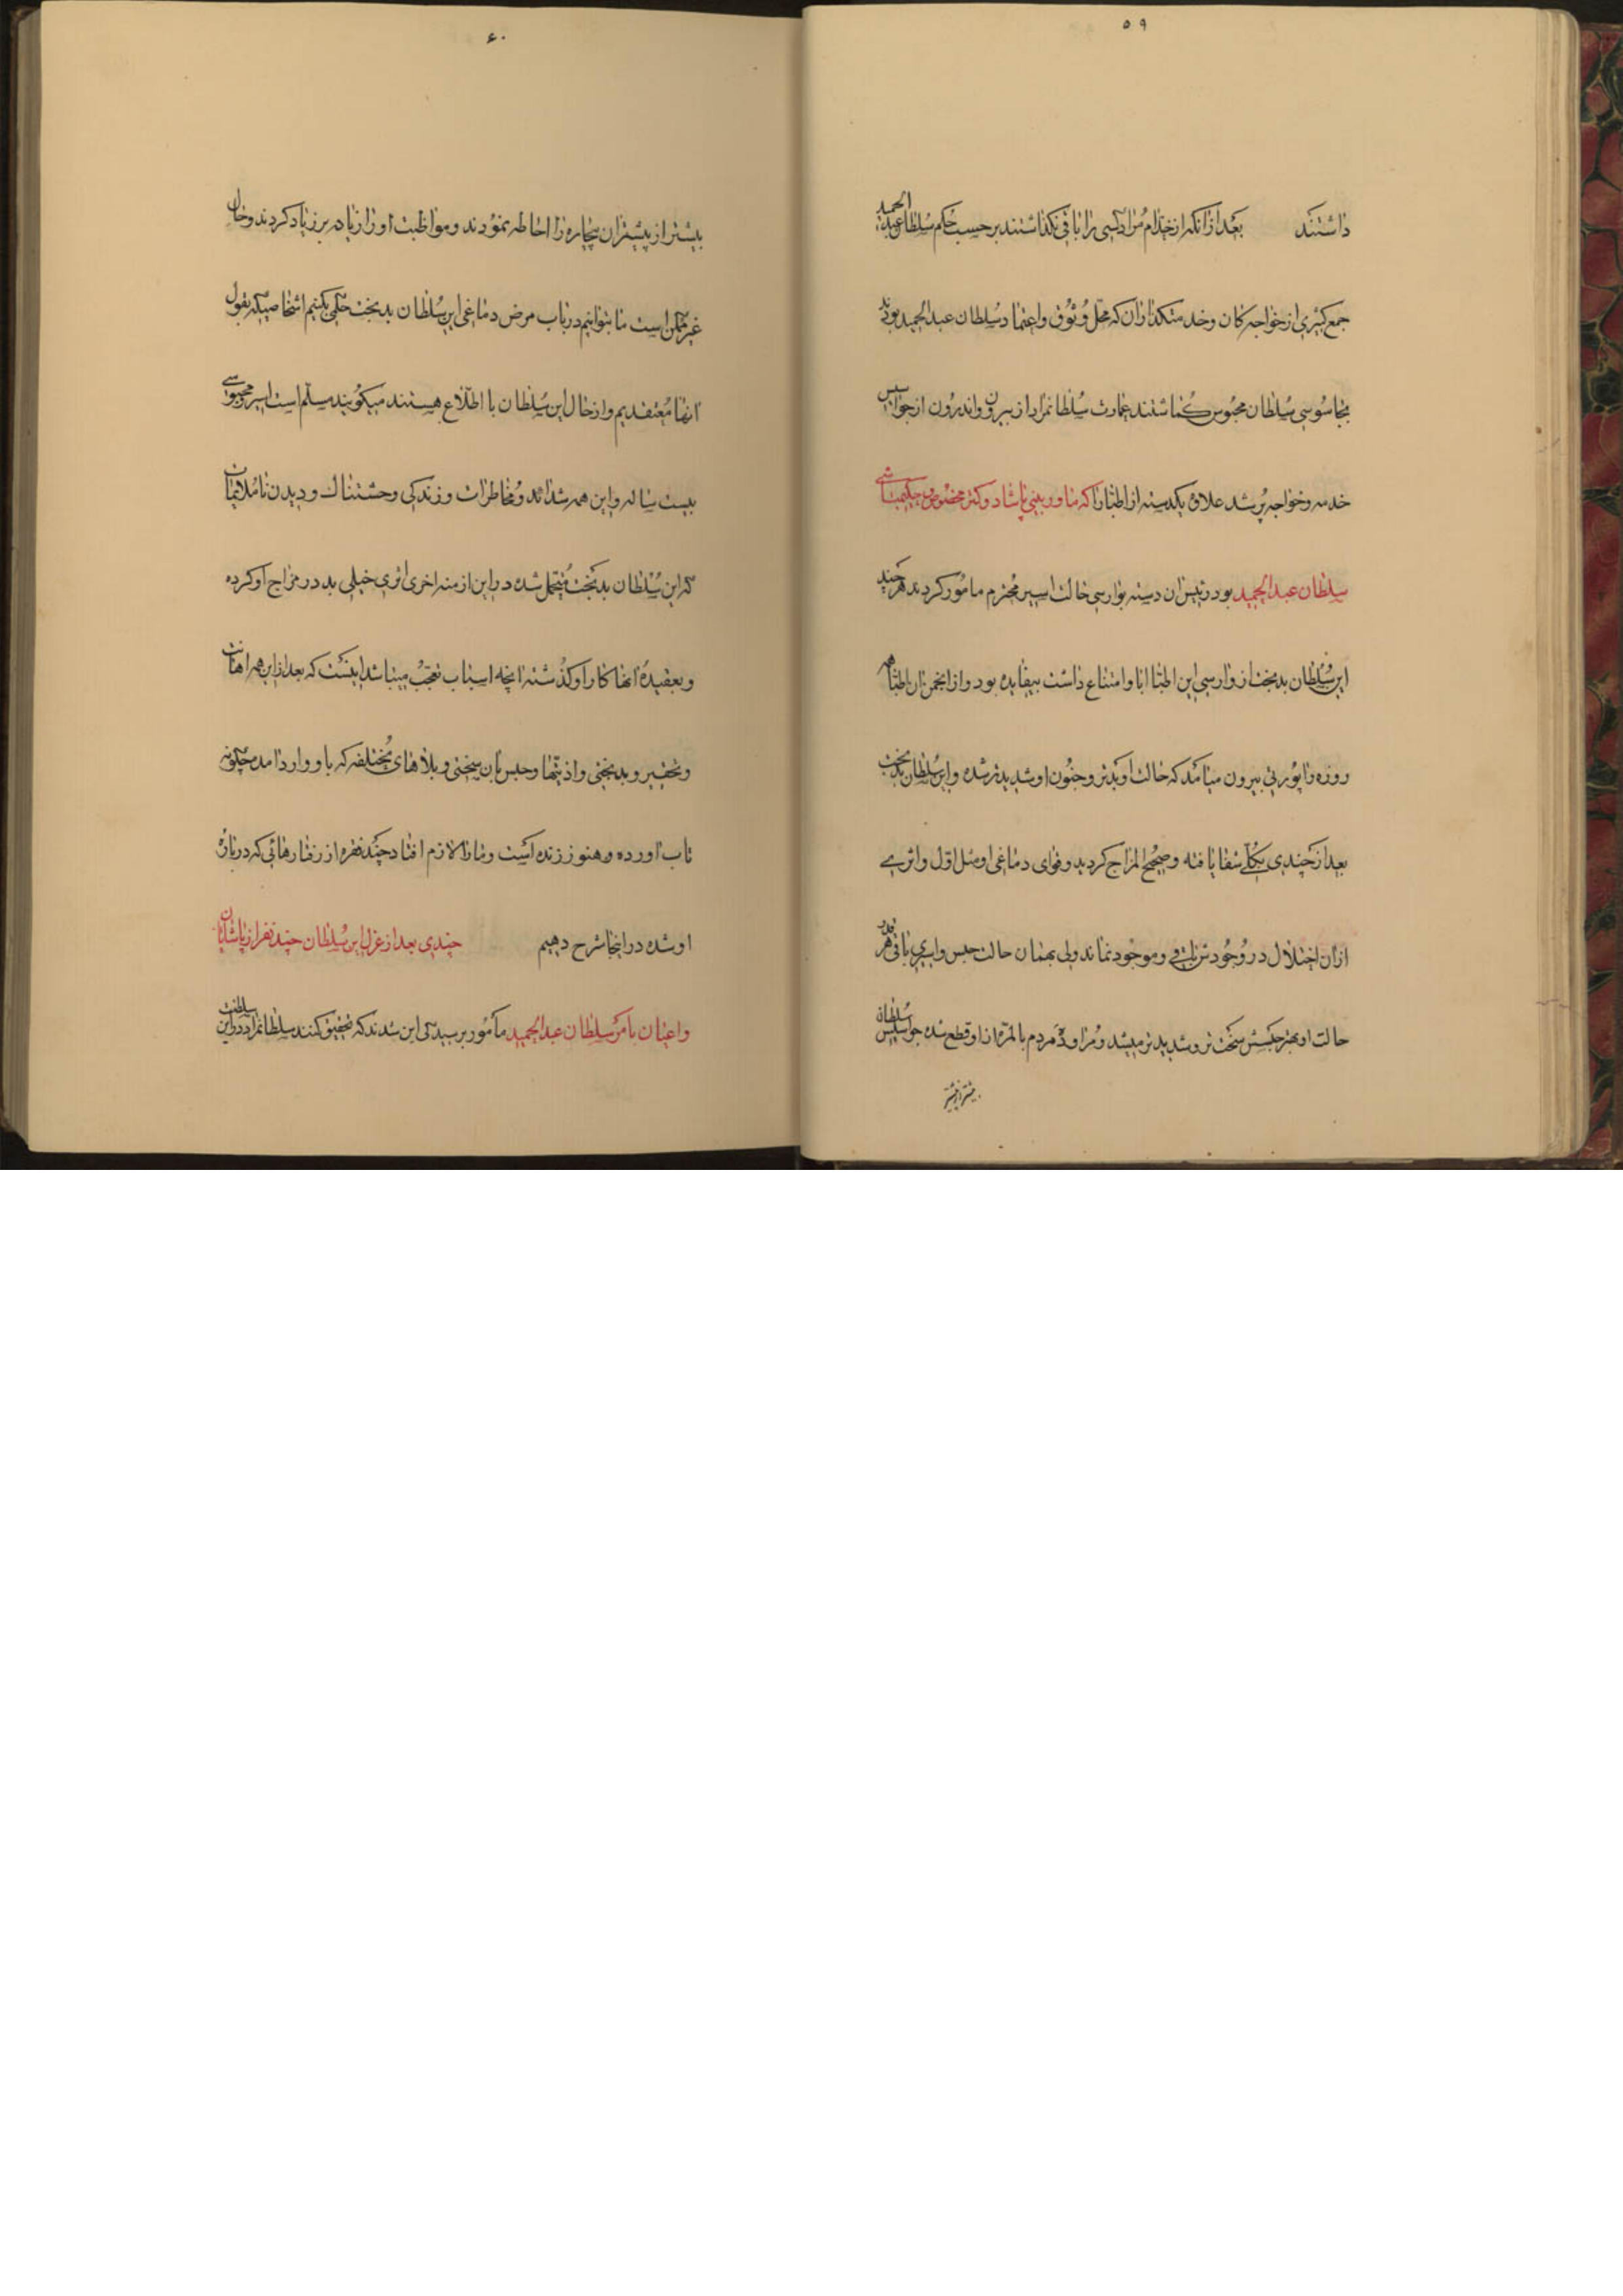 ۵۹
داشتند بعد از آنکه از خدام مراد کسی را باقی نگذاشتند بر حسب حکم سلطان عبدالحمید
جمع کثیری از خواجه کان و خدمتکذاران که محل وثوق و اعتماد سلطان عبدالحمید بودند
بجاسوسی سلطان محبوس کماشتند عمارت سلطانمراد از بیرون و اندرون از جواسیس
خدمه و خواجه پر شد علاوه یکدسته از اطبا را که ماورینی پاشا دوکتر مخصوص حکیمباشی
سلطان عبدالحمید بود رئیس ان دسته بوارسی حالت اسیر محترم مامور کردند هر چند
این سلطان بدبخت از وارسی این اطبا ابا و امتناع داشت بیفایده بود و از انجمن ان اطبا همه
روزه راپورتی بیرون میامد که حالت او بدتر و جنون او شدیدتر شده و این سلطان بدبخت
بعد از چندی بکلی شفا یافته و صحیح المزاج کردید و قوای دماغی او مثل اول و اثری
از ان اختلال در وجودش باقی و موجود نماند ولی بهمان حالت حبس و اسیری باقی هر قدر
حالت او بهتر حبسش سخت تر و شدیدتر میشد و مراوده مردم بالمره از او قطع شده جواسیس سلطان
بیشتر از پیشتر
۶۰
بیشتر از پیشتر ان بیچاره را احاطه نمودند و مواظبت او را زیاده بر زیاد کردند و حال
غیر ممکن است ما بتوانیم در باب مرض دماغی این سلطان بدبخت حکمی بکنیم اشخاصیکه بقول
انها معتقدیم و از حال این سلطان با اطلاع هستند میکویند مسلم است اسیر محبوسی
بیست ساله و این همه شدائد و مخاطرات و زندکی وحشتناک و دیدن ناملایمات
که این سلطان بدبخت متحمل شده در این ازمنه اخری اثری خیلی بد در مزاج او کرده
و بعقیده انها کار او کذشته انچه اسباب تعجب میباشد اینست که بعد از این همه اهانت
و تحقیر و بدبختی و اذیتها و حبس بان سختی و بلاهای مختلفه که باو وارد امده چکونه
تاب اورده و هنوز زنده است و ما را لازم افتاد چند فقره از رفتارهائی که درباره
او شده در اینجا شرح دهیم چندی بعد از عزل این سلطان چند نفر از پاشایان
و اعیان بامر سلطان عبدالحمید مأمور برسیدکی این شدند که تحقیق کنند سلطانمراد در این سلطنت